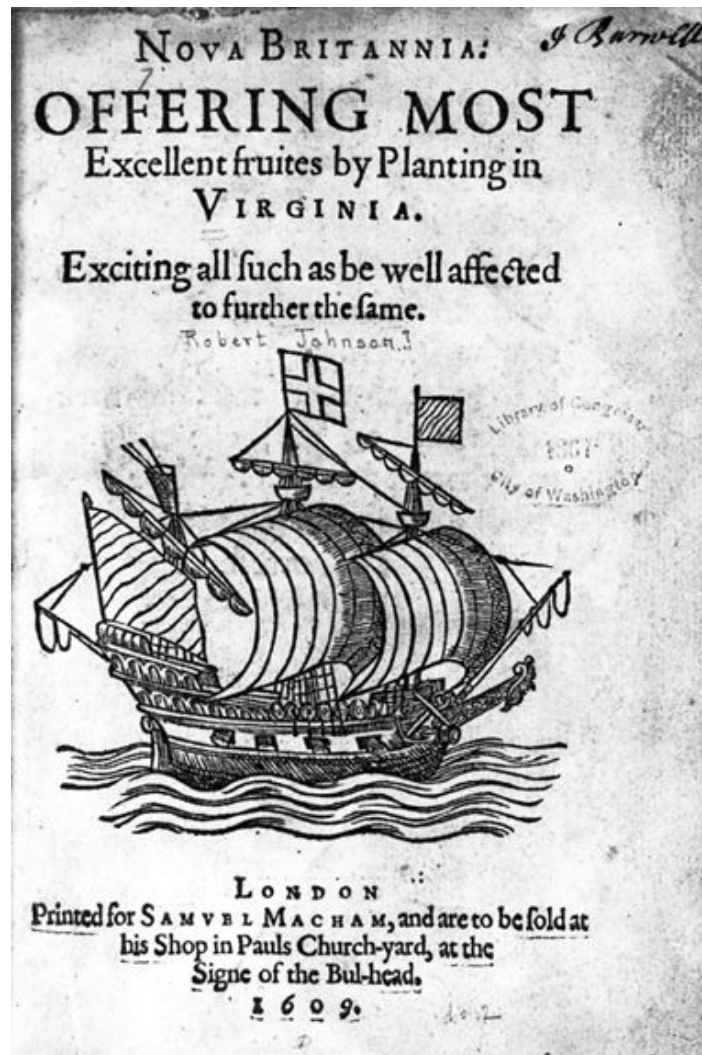 NOVA BRITANNIA:
OFFERING MOST
Excellent fruites by Planting in
VIRGINIA.
Exciting all ſuch as be well affected
to further the ſame.
Robert Johnson.]
Library of Congress
1867
City of Washington
LONDON
Printed for SAMVEL MACHAM, and are to be ſold at
his Shop in Pauls Church-yard, at the
Signe of the Bul-head.
1609.